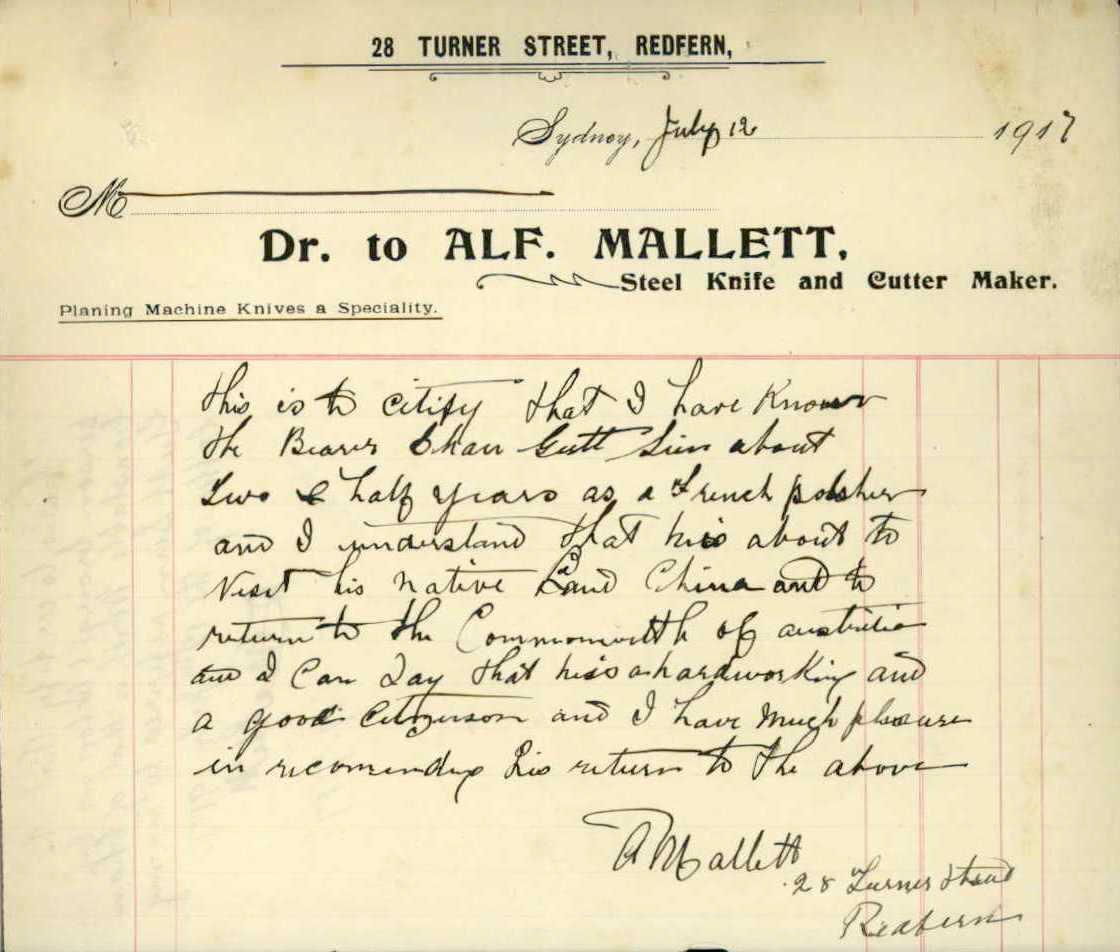 28 TURNER STREET, REDFERN,
Sydney, July 12 1917
M
Dr. to ALF. MALLETT,
Steel Knife and Cutter Maker.
Planing Machine Knives a Speciality.
this is to citify that I have Known
the Bearer Chan Gutt Sim about
two & half years as a French polisher
and I understand that his about to
visit his native Land China and to
return to the Commonwelth of australia
and I Can Say that his a hardworking and
a good Citizen and I have Much pleasure
in recomending his return to the above
A Mallett
28 Turner Street
Redfern